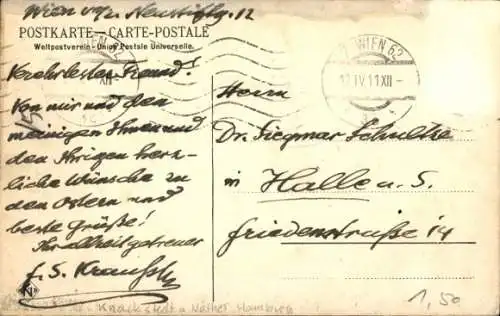 Wien VII/2 Neustiftg. 12
POSTKARTE — CARTE-POSTALE
Weltpostverein - Union Postale Universelle.
WIEN 62
XII
Verehrtester Freund!
Von mir und den
meinigen Ihnen und
den Ihrigen herz-
liche Wünsche zu
den Ostern und
beste Grüße!
Ihr allzeit getreuer
F. S. Krauss
WIEN 62
IV 11 XII -
Herrn
Dr. Siegmar Schultze
in Halle a. S.
Friedenstraße 14
Knackstedt u Näther Hamburg
1,50